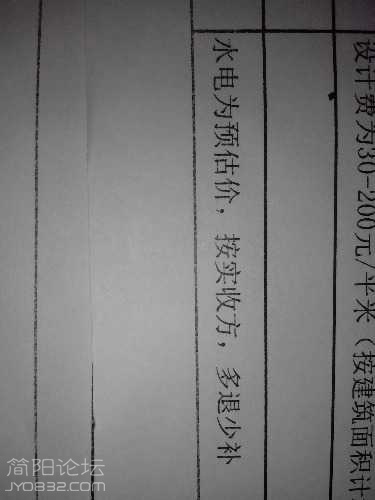 设计费为30-200元/平米（按建筑面积计
水电为预估价，按实收方，多退少补
简阳论坛
JY0832.com